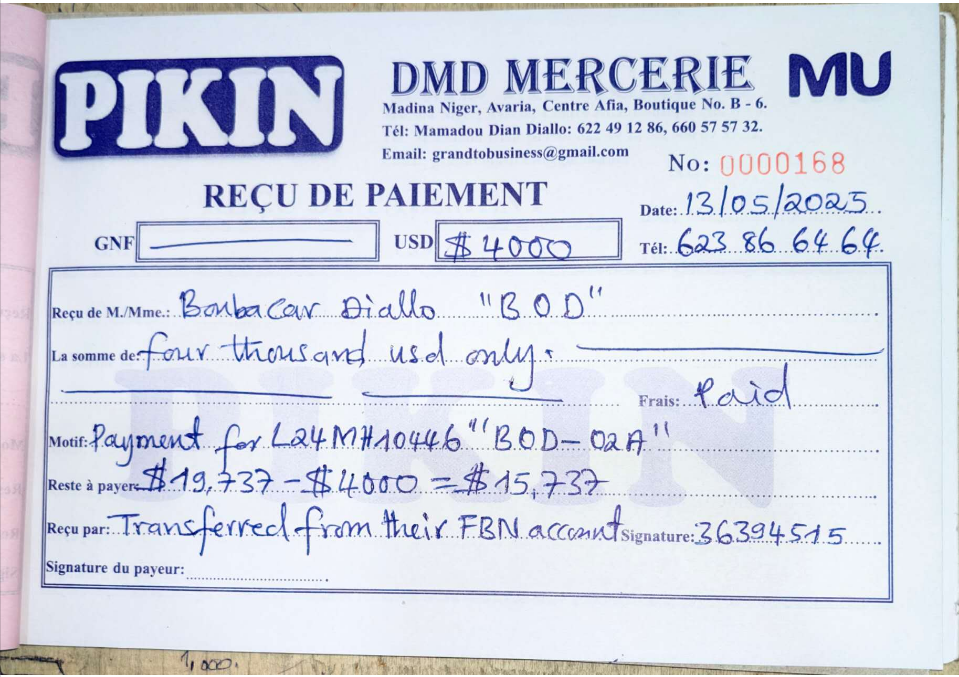 PIKIN
DMD MERCERIE
MU
Madina Niger, Avaria, Centre Afia, Boutique No. B - 6.
Tél: Mamadou Dian Diallo: 622 49 12 86, 660 57 57 32.
Email: grandtobusiness@gmail.com
No: 0000168
REÇU DE PAIEMENT
Date: 13/05/2025
GNF USD $4000
Tél: 623 86 64 64
Reçu de M./Mme.: Boubacar Diallo "BOD"
La somme de: four thousand usd only.
Frais: Paid
Motif: Payment for L24MH10446 "BOD-02A"
Reste à payer: $19,737 - $4000 = $15,737
Reçu par: Transferred from their FBN account Signature: 36394515
Signature du payeur:
PIKIN
1,000.